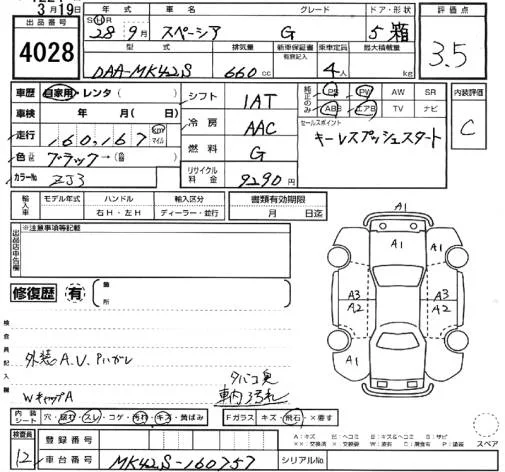 3月19日
出品番号 4028
年式 グレード ドア・形状 評価点
S H R 28年9月 スペーシア G 5 箱
3.5
型式 排気量 新車保証書 有(記録簿) 乗車定員 最大積載量
DAA-MK42S 660cc 4人 kg
車歴 自家用・レンタ( ) シフト 1AT
PS PW AW SR 内装評価
純正のみ ABS エアB TV ナビ
C
車検 年 月( 日) 冷房 AAC
セールスポイント
キーレスプッシュスタート
走行 160,167 km マイル
燃料 G
色 ブラック→( )
カラーNo ZJ3
リサイクル料金 9290円
輸入車 モデル年式 ハンドル 輸入区分 書類有効期限
右H・左H ディーラー・並行 月 日迄
出品店申告欄 ※注意事項等記載
修復歴 有 箇所
検査員記入欄
外装A.U.Pハガレ
WキャップA
タバコ臭
車内汚れ
A1
A1 A1
A3 A3
A2 A2
内装シート 穴・破れ・スレ・コゲ・汚れ・キズ・黄ばみ
Fガラス キズ・飛石・×要す
スペア
検査員 12
登録番号
車台番号 MK42S-160757 シリアルNo.